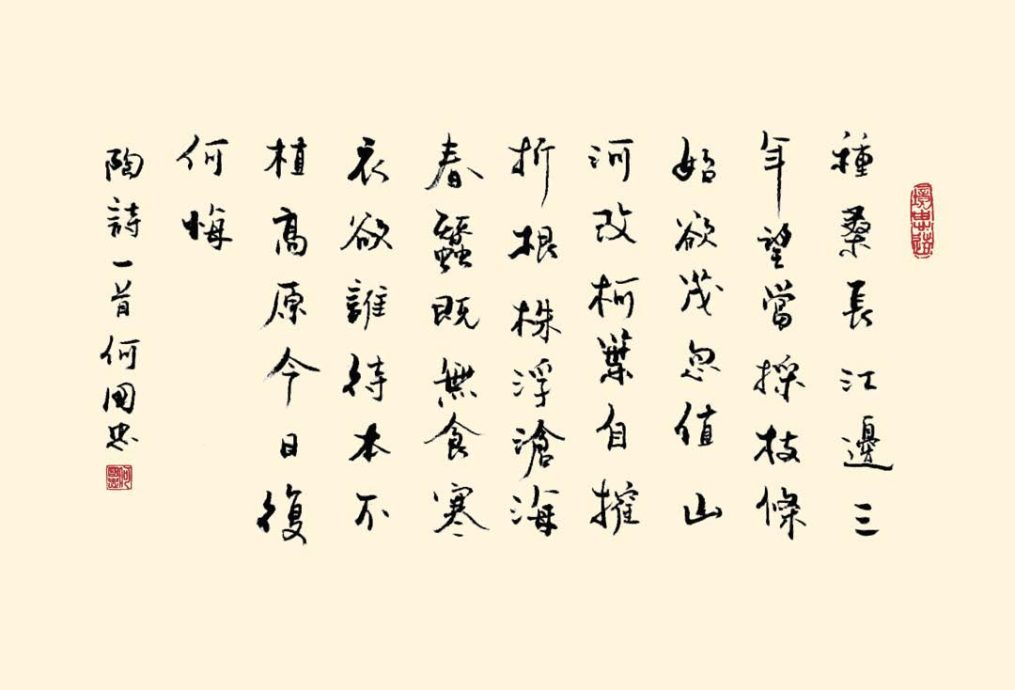 種桑長江邊三
年望當採枝條
始欲茂忽值山
河改柯葉自摧
折根株浮滄海
春蠶既無食寒
衣欲誰待本不
植高原今日復
何悔
陶詩一首何國忠